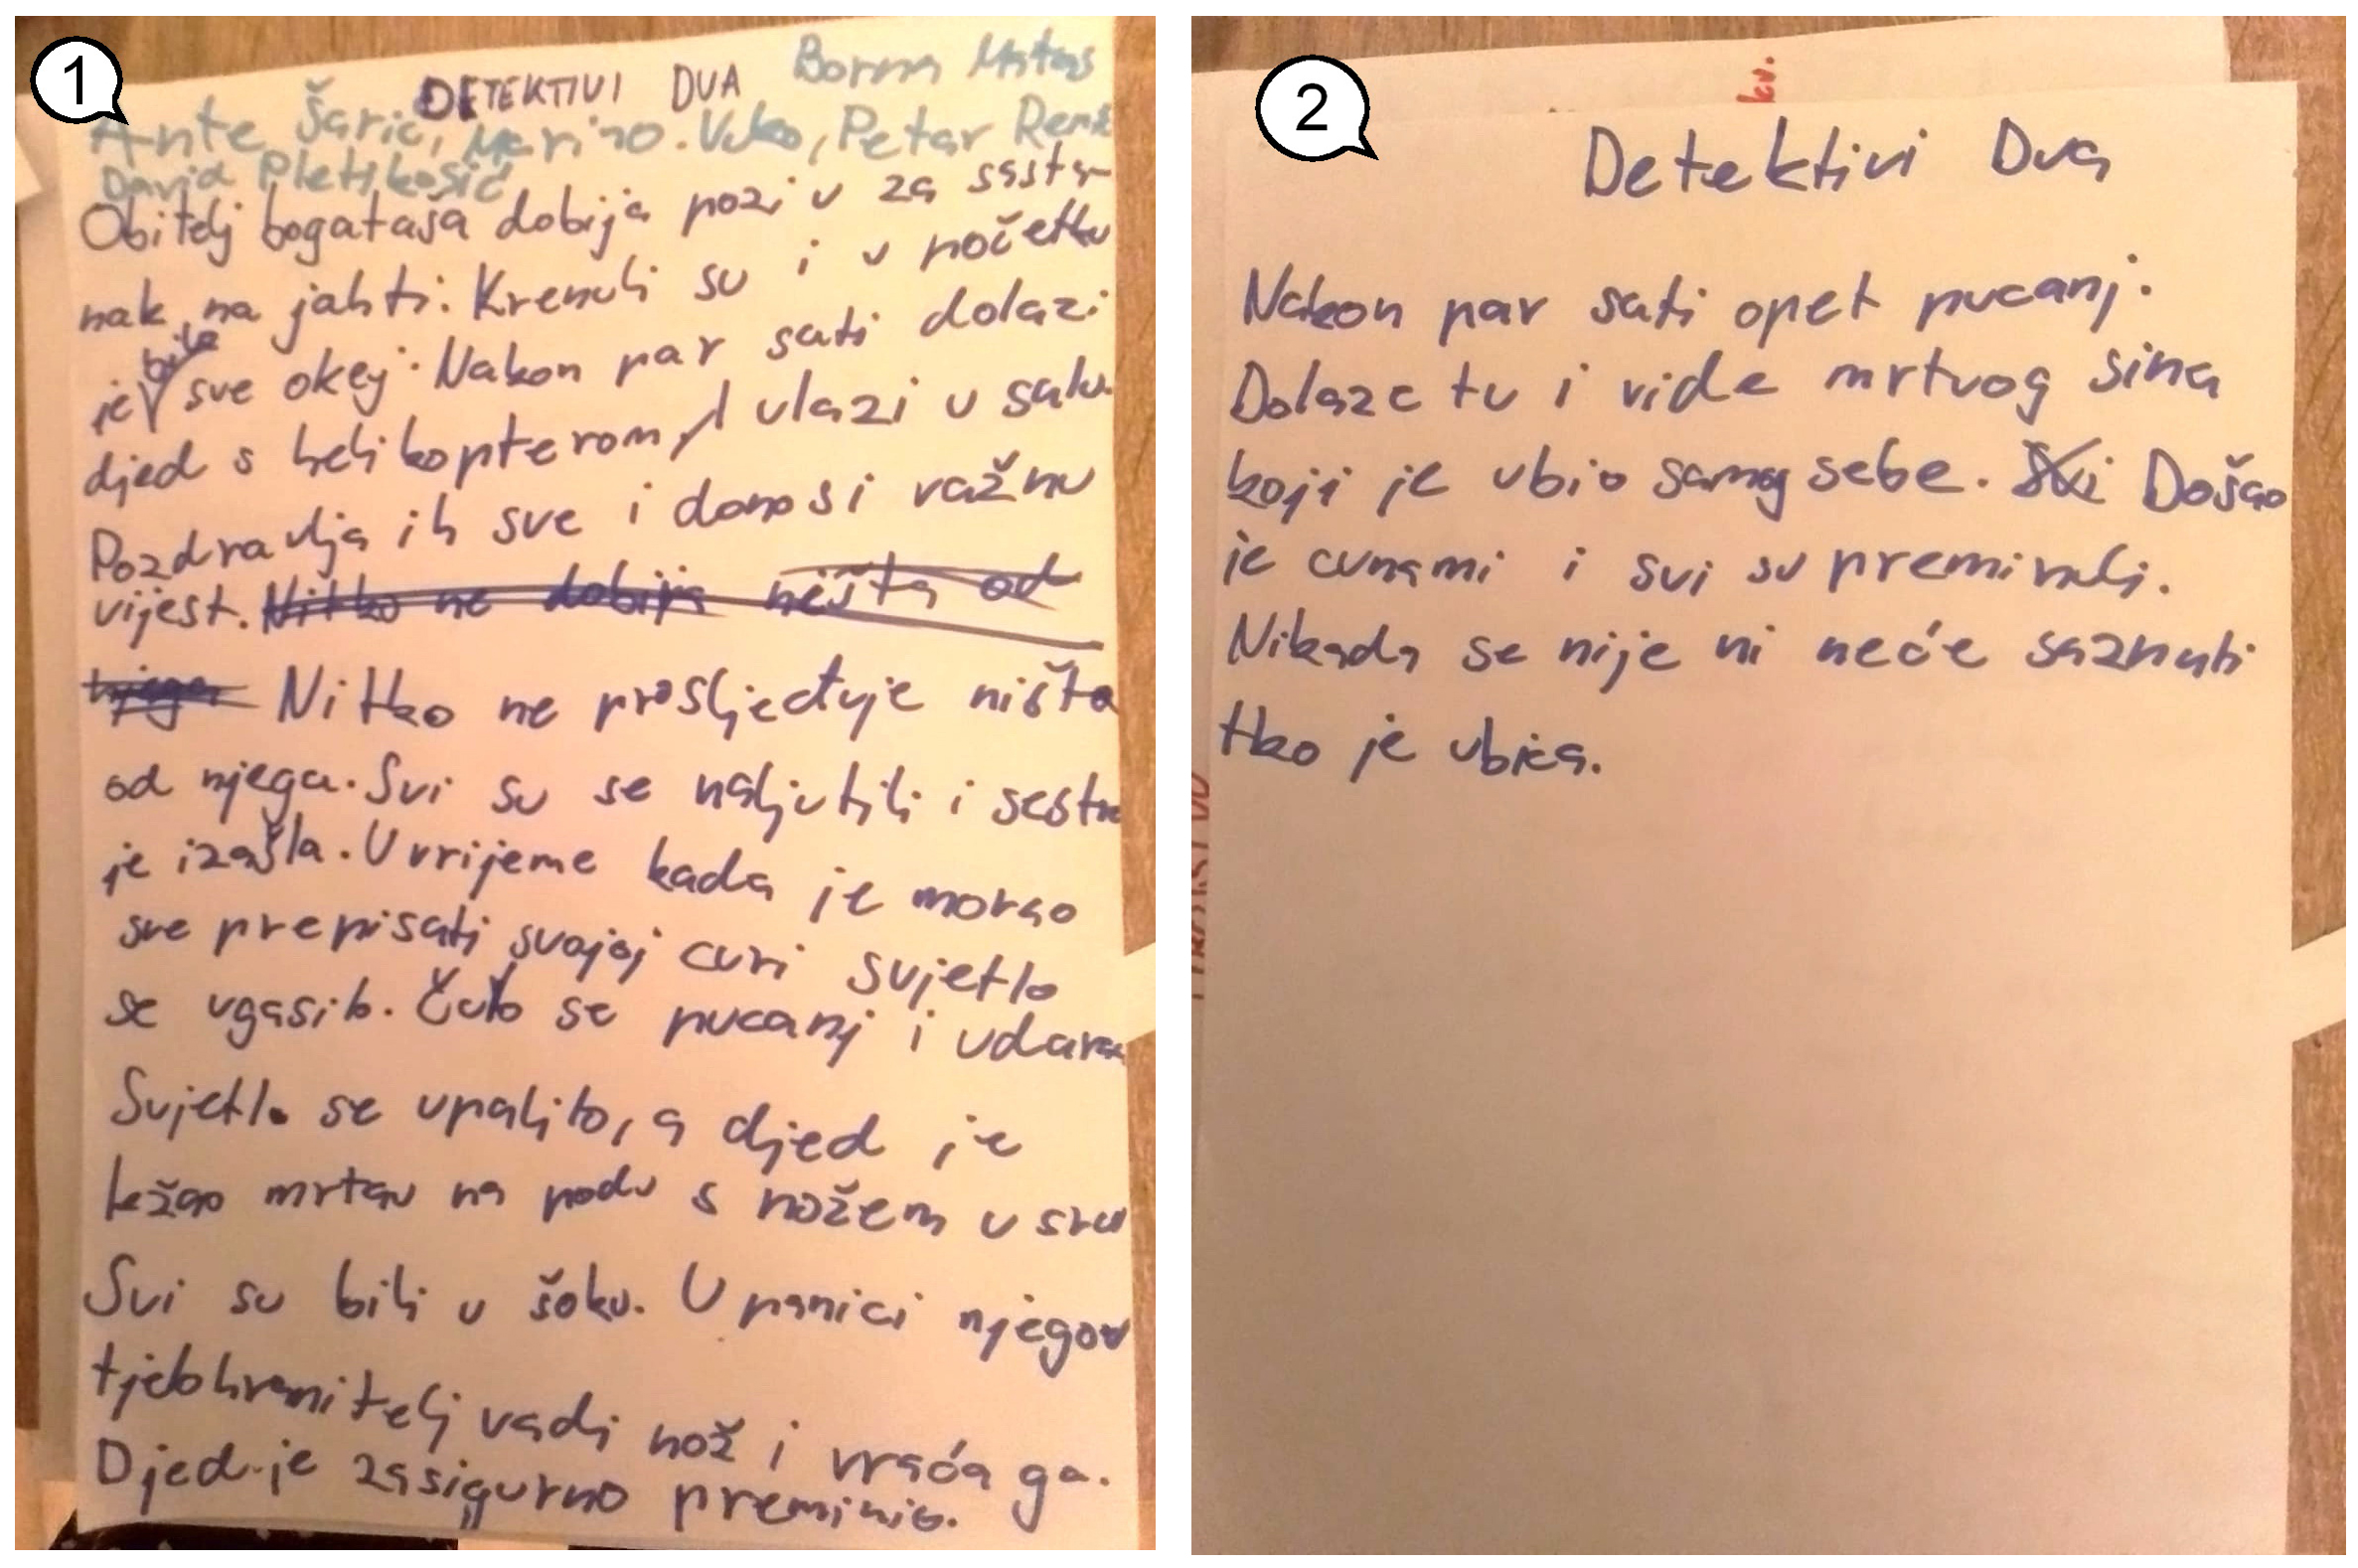 1
DETEKTIVI DUA Borna Matas
Ante Šarić, Marino Vuko, Petar
David Pletikosić
Obitelj bogataša dobija poziv za sasta-
nak na jahti. Krenuli su i u početku
je bilo sve okej. Nakon par sati dolazi
djed s helikopterom, I ulazi u salu.
Pozdravlja ih sve i donosi važnu
vijest. Nitko ne dobija ništa od
njega Nitko ne prosljeđuje ništa
od njega. Svi su se naljutili i sestra
je izašla. U vrijeme kada je morao
sve prepisati svojoj curi svjetlo
se ugasilo. Čulo se pucanj i udarac
Svjetlo se upalilo, a djed je
ležao mrtav na podu s nožem u srcu
Svi su bili u šoku. U panici njegov
tjelohranitelj vadi nož i vraća ga.
Djed je zasigurno preminio.
2
kv.
Detektivi Dva
Nakon par sati opet pucanj.
Dolaze tu i vide mrtvog sina
koji je ubio samog sebe. Svi Došao
je cunami i svi su preminuli.
Nikada se nije ni neće saznati
tko je ubica.